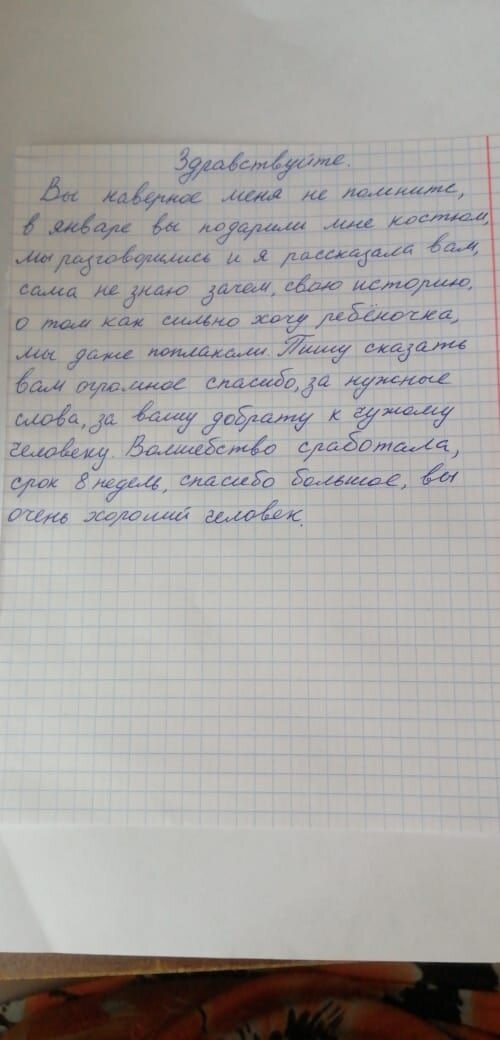 Здравствуйте.
Вы наверное меня не помните,
в январе вы подарили мне костюм,
мы разговорились и я рассказала вам,
сама не знаю зачем, свою историю,
о том как сильно хочу ребёночка,
мы даже поплакали. Пишу сказать
вам огромное спасибо, за нужные
слова, за вашу доброту к чужому
человеку. Волшебство сработала,
срок 8 недель, спасибо большое, вы
очень хороший человек.